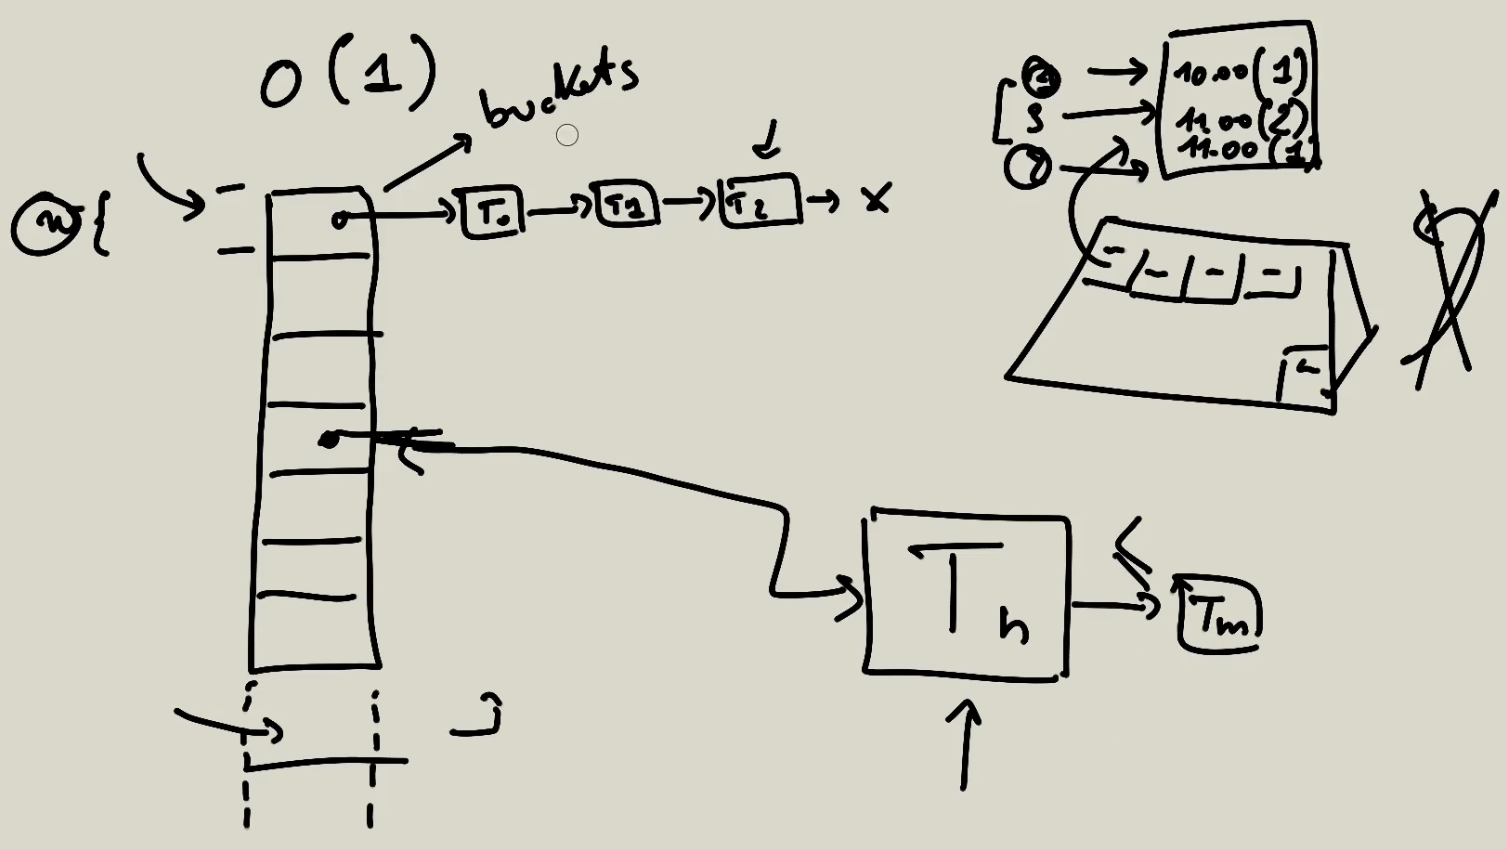 O(1)
buckets
n {
T₀
T1
T2
X
3
10.00 (1)
11.00 (2)
11.00 (1)
Th
Tm